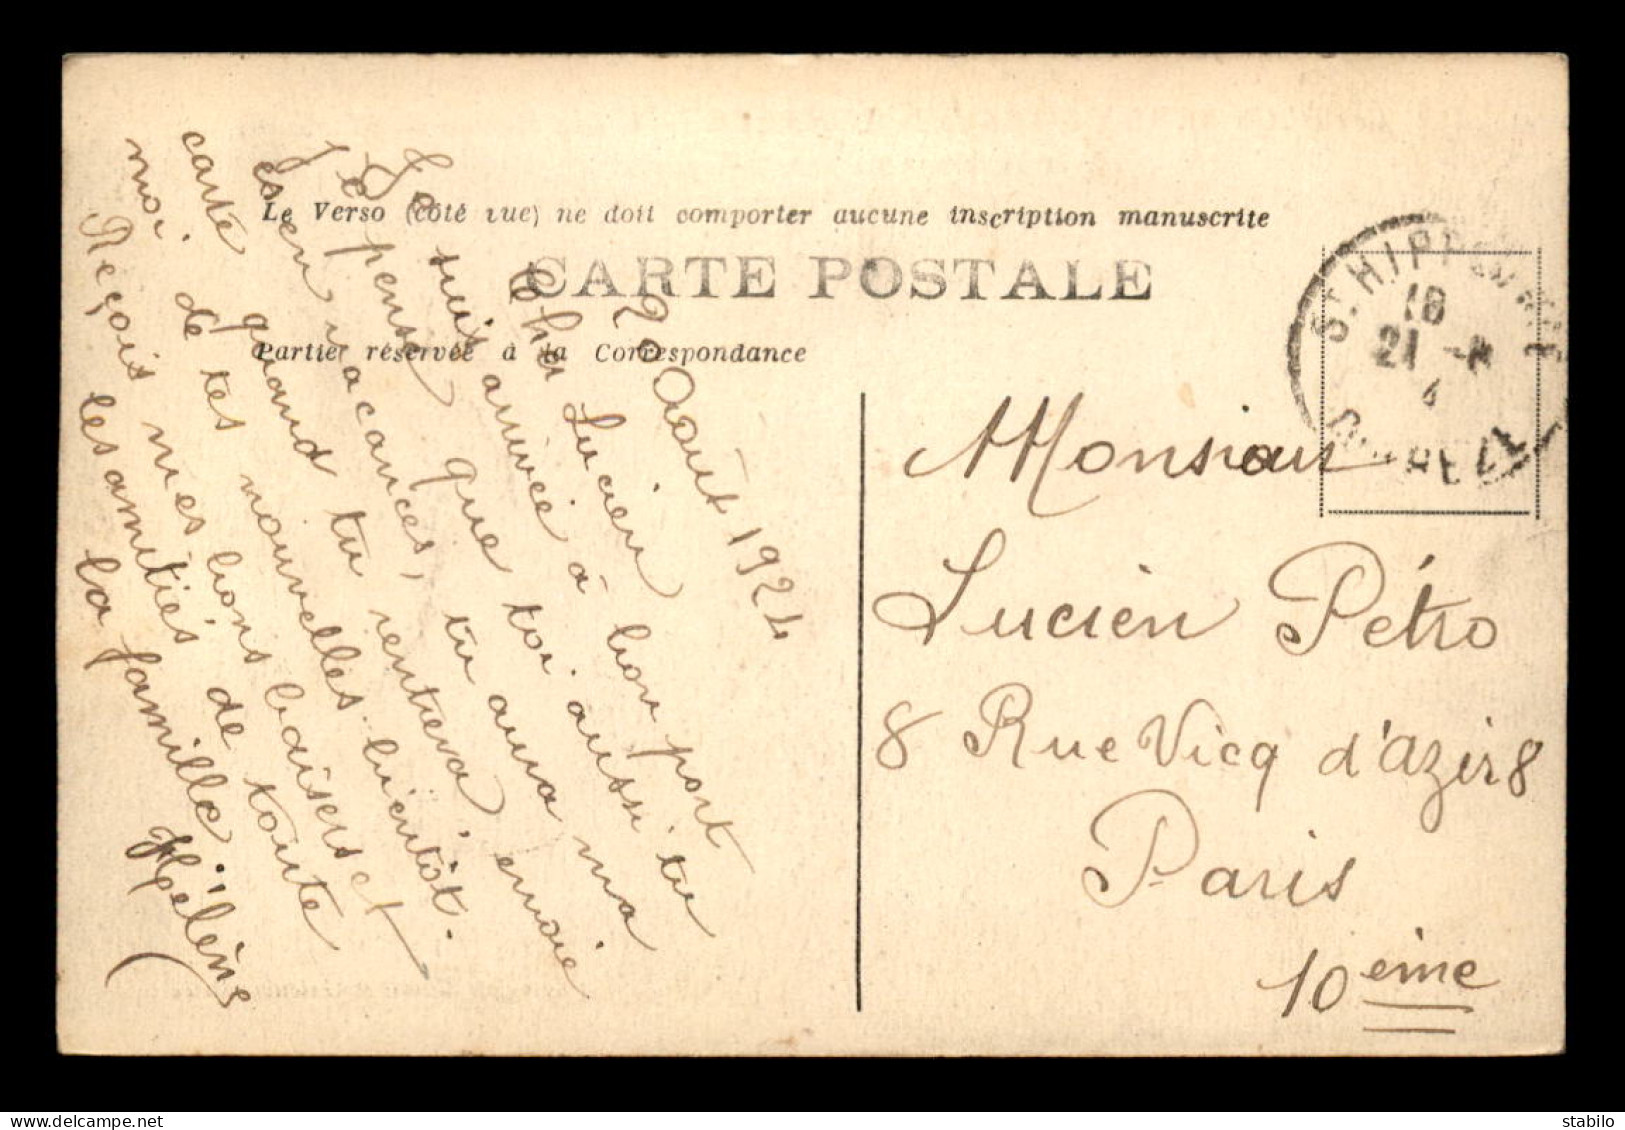 Le Verso (côté vue) ne doit comporter aucune inscription manuscrite
CARTE POSTALE
Partie réservée à la Correspondance
20 Août 1924
Cher Lucien
Je suis arrivée à bon port
Je pense que toi aussi tu
es en vacances, tu aura ma
carte quand tu rentrera, envoie
moi de tes nouvelles bientôt.
Reçois mes bons baisers et
les amitiés de toute
la famille.
Hélène
ST HIPPOLYTE
18
21 -8
Monsieur
Lucien Pétro
8 Rue Vicq d'azir 8
Paris
10 ème
stabilo